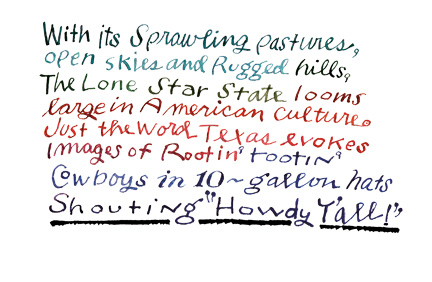 With its Sprawling pastures,
open skies and Rugged hills,
The Lone Star State looms
large in American culture.
Just the word Texas evokes
images of Rootin' tootin'
Cowboys in 10~gallon hats
Shouting "Howdy Y'all!"